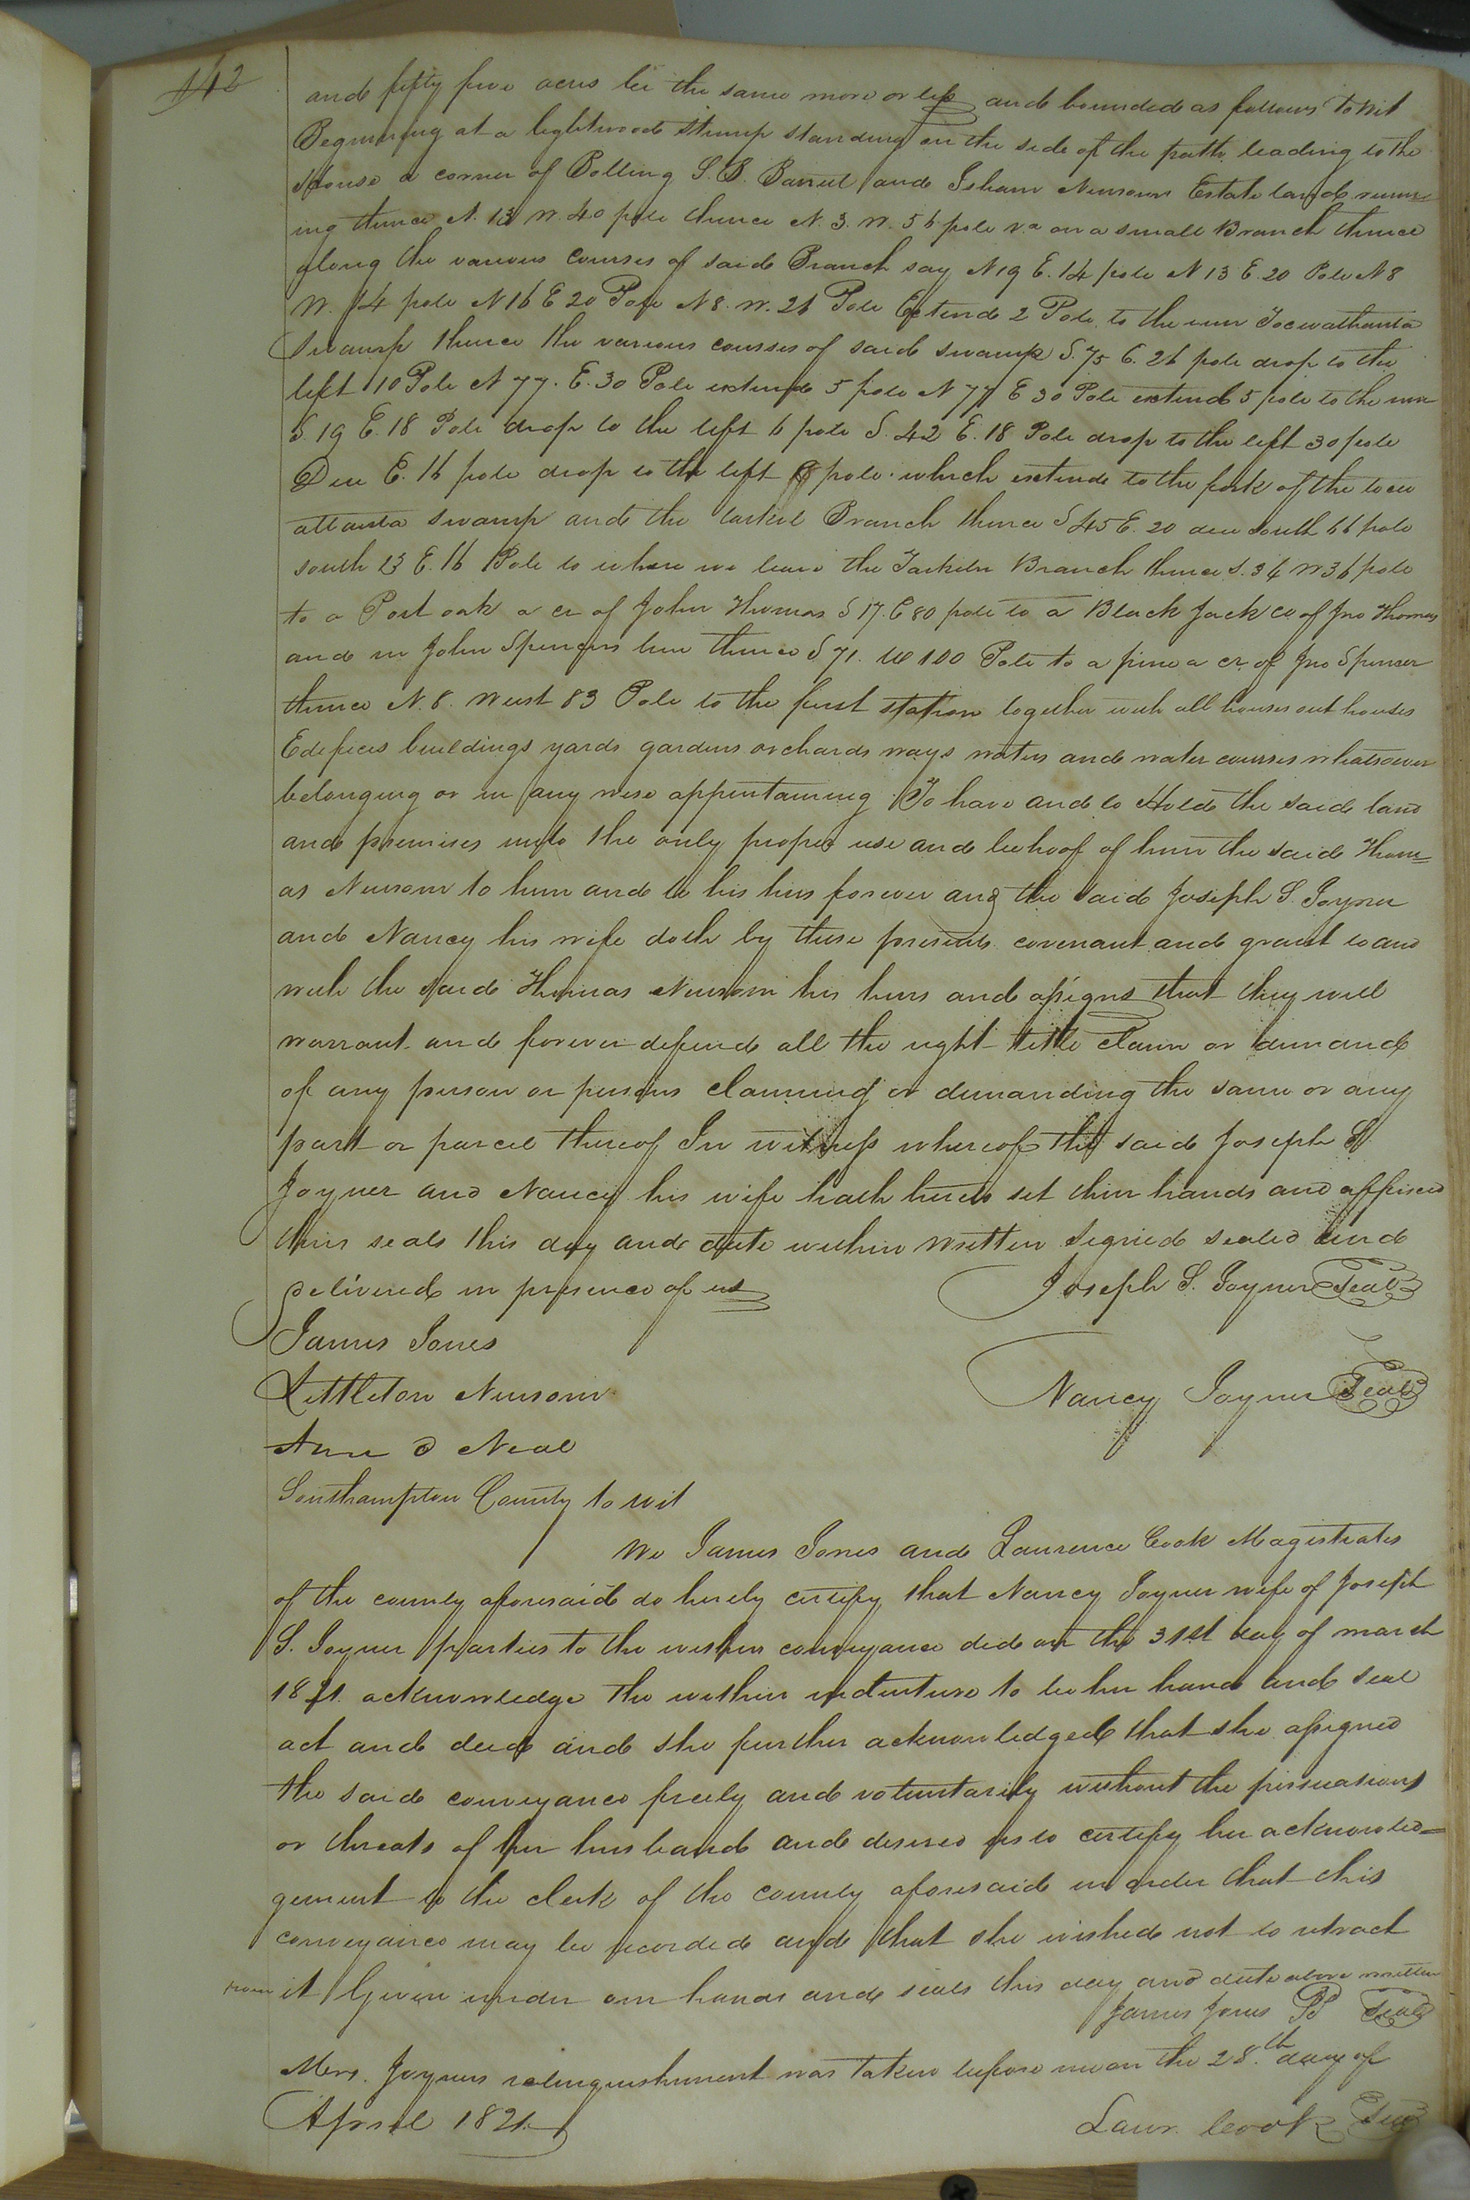 142
and fifty five acres be the same more or less and bounded as follows to wit
Beginning at a lightwood stump standing on the side of the path leading to the
House a corner of Bolling S. B. Barrel and Isham Newsoms Estate lands runn=
ing thence N. 13 W. 40 pole thence N. 3. W. 56 pole on a small Branch thence
along the various courses of said Branch say N 19 E. 14 pole N 13 E. 20 Pole N 8
W. 14 pole N 16 E 20 Pole N 8. W. 26 Pole Extend 2 Pole to the run
Swamp thence the various courses of said swamp S. 75 E. 26 pole drop to the
left 10 Pole N 77. E. 30 Pole extend 5 pole N 77 E 30 Pole extend 5 pole to the run
S. 19 E. 18 Pole drop to the left 6 pole S. 42 E. 18 Pole drop to the left 30 pole
Due E. 16 pole drop to the left pole which extends to the fork of the
swamp and the Branch thence S 45 E. 20 due South 66 pole
south 13 E. 16 Pole to where we leave the Tarkiln Branch thence S. 34 W 36 pole
to a Post oak a cr of John Thomas S 17. E 80 pole to a Black Jack co of Jno Thomas
and in John Spencers line thence S 71. W 100 Pole to a pine a cr. of Jno Spenser
thence N. 8. West 83 Pole to the first station together with all houses out houses
Edefices buildings yards gardens orchards ways waters and water courses whatsoever
belonging or in any wise appertaining To have and to Hold the said land
and premises unto the only proper use and behoof of him the said Thom=
as Newsom to him and to his heirs forever and the said Joseph S. Joyner
and Nancy his wife doth by these presents covenant and grant to and
with the said Thomas Newsom his heirs and assigns that they will
warrant and forever defend all the right title claim or demand
of any person or persons claiming or demanding the same or any
part or parcel thereof In witness whereof the said Joseph S.
Joyner and Nancy his wife hath hereto set their hands and affixed
their seals this day and date within written Signed sealed and
Delivered in presence of us
Joseph S. Joyner Seal
James Jones
Littleton Newsom
Nancy Joyner Seal
Ann O Neal
Southampton County to wit
We James Jones and Laurence Cook Magistrates
of the county aforesaid do hereby certify that Nancy Joyner wife of Joseph
S. Joyner parties to the within conveyance did on the 31st day of march
1821. acknowledge the within indenture to be her hand and seal
act and deed and she further acknowledged that she assigned
the said conveyance freely and voluntarily without the persuasions
or threats of her husband and desired us to certify her acknowled=
gement to the clerk of the county aforesaid in order that this
conveyance may be recorded and that she wished not to retract
from it Given under our hands and seals this day and date above written
James Jones Seal
Mrs. Joyners relinquishment was taken before me on the 28.th day of
April 1821.
Laur. Cook Seal